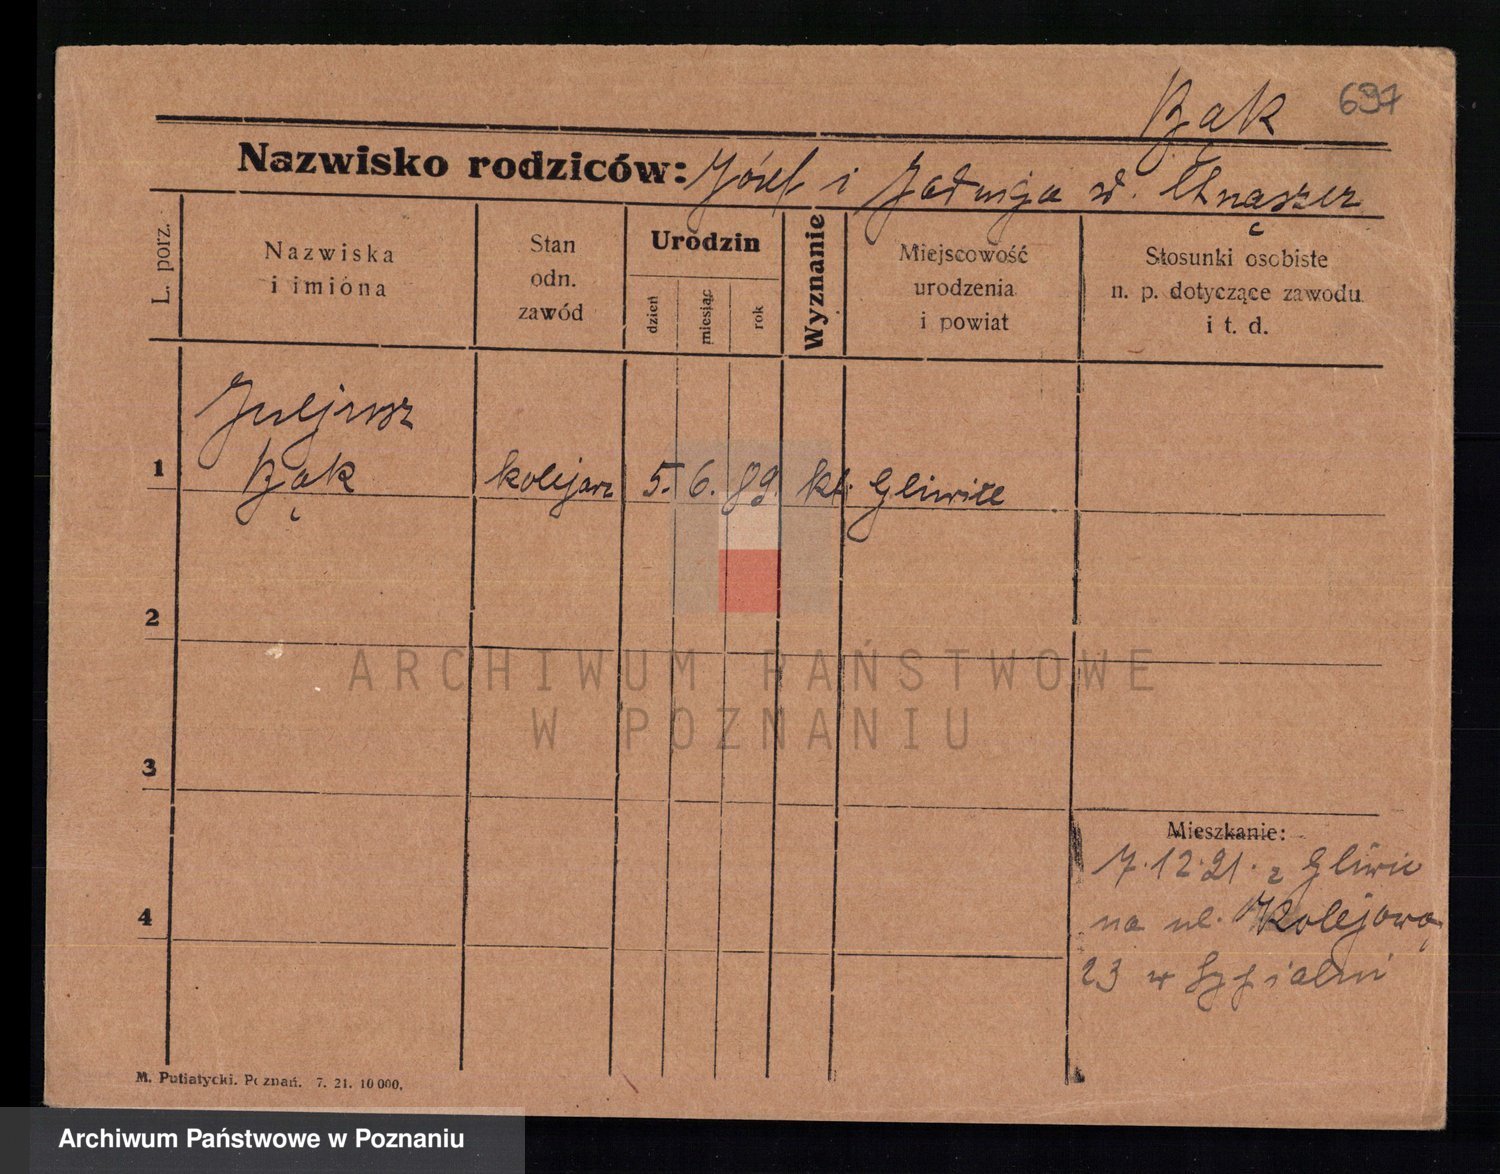 Bąk 697
Nazwisko rodziców: Józef i Jadwiga
L. porz.
Nazwiska
i imióna
Stan
odn.
zawód
Urodzin
dzień
miesiąc
rok
Wyznanie
Miejscowość
urodzenia
i powiat
Stosunki osobiste
n. p. dotyczące zawodu
i t. d.
Juljusz
1 Bąk kolejarz 5. 6. 89. kt. Gliwice
2
3
4
ARCHIWUM PAŃSTWOWE
W POZNANIU
Mieszkanie:
7.12.21. z Gliwic
na ul. Kolejową
23 w Sypialni
M. Putiatycki. Poznań. 7. 21. 10 000.
Archiwum Państwowe w Poznaniu